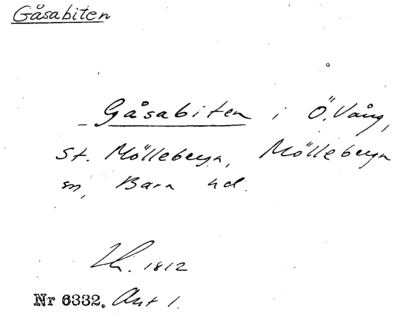 Gåsabiten
Gåsabiten i Ö. Vång,
St. Mölleberga, Mölleberga
sn, Bara hd.
1812
Nr 6332. Akt 1.